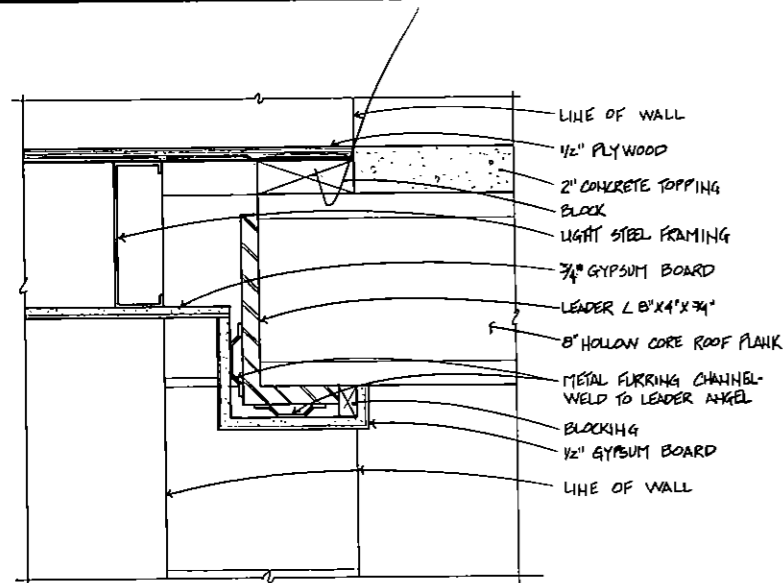 LINE OF WALL
1/2" PLYWOOD
2" CONCRETE TOPPING
BLOCK
LIGHT STEEL FRAMING
3/4" GYPSUM BOARD
LEADER L 8"X4"X3/4"
8" HOLLOW CORE ROOF PLANK
METAL FURRING CHANNEL-
WELD TO LEADER ANGEL
BLOCKING
1/2" GYPSUM BOARD
LINE OF WALL